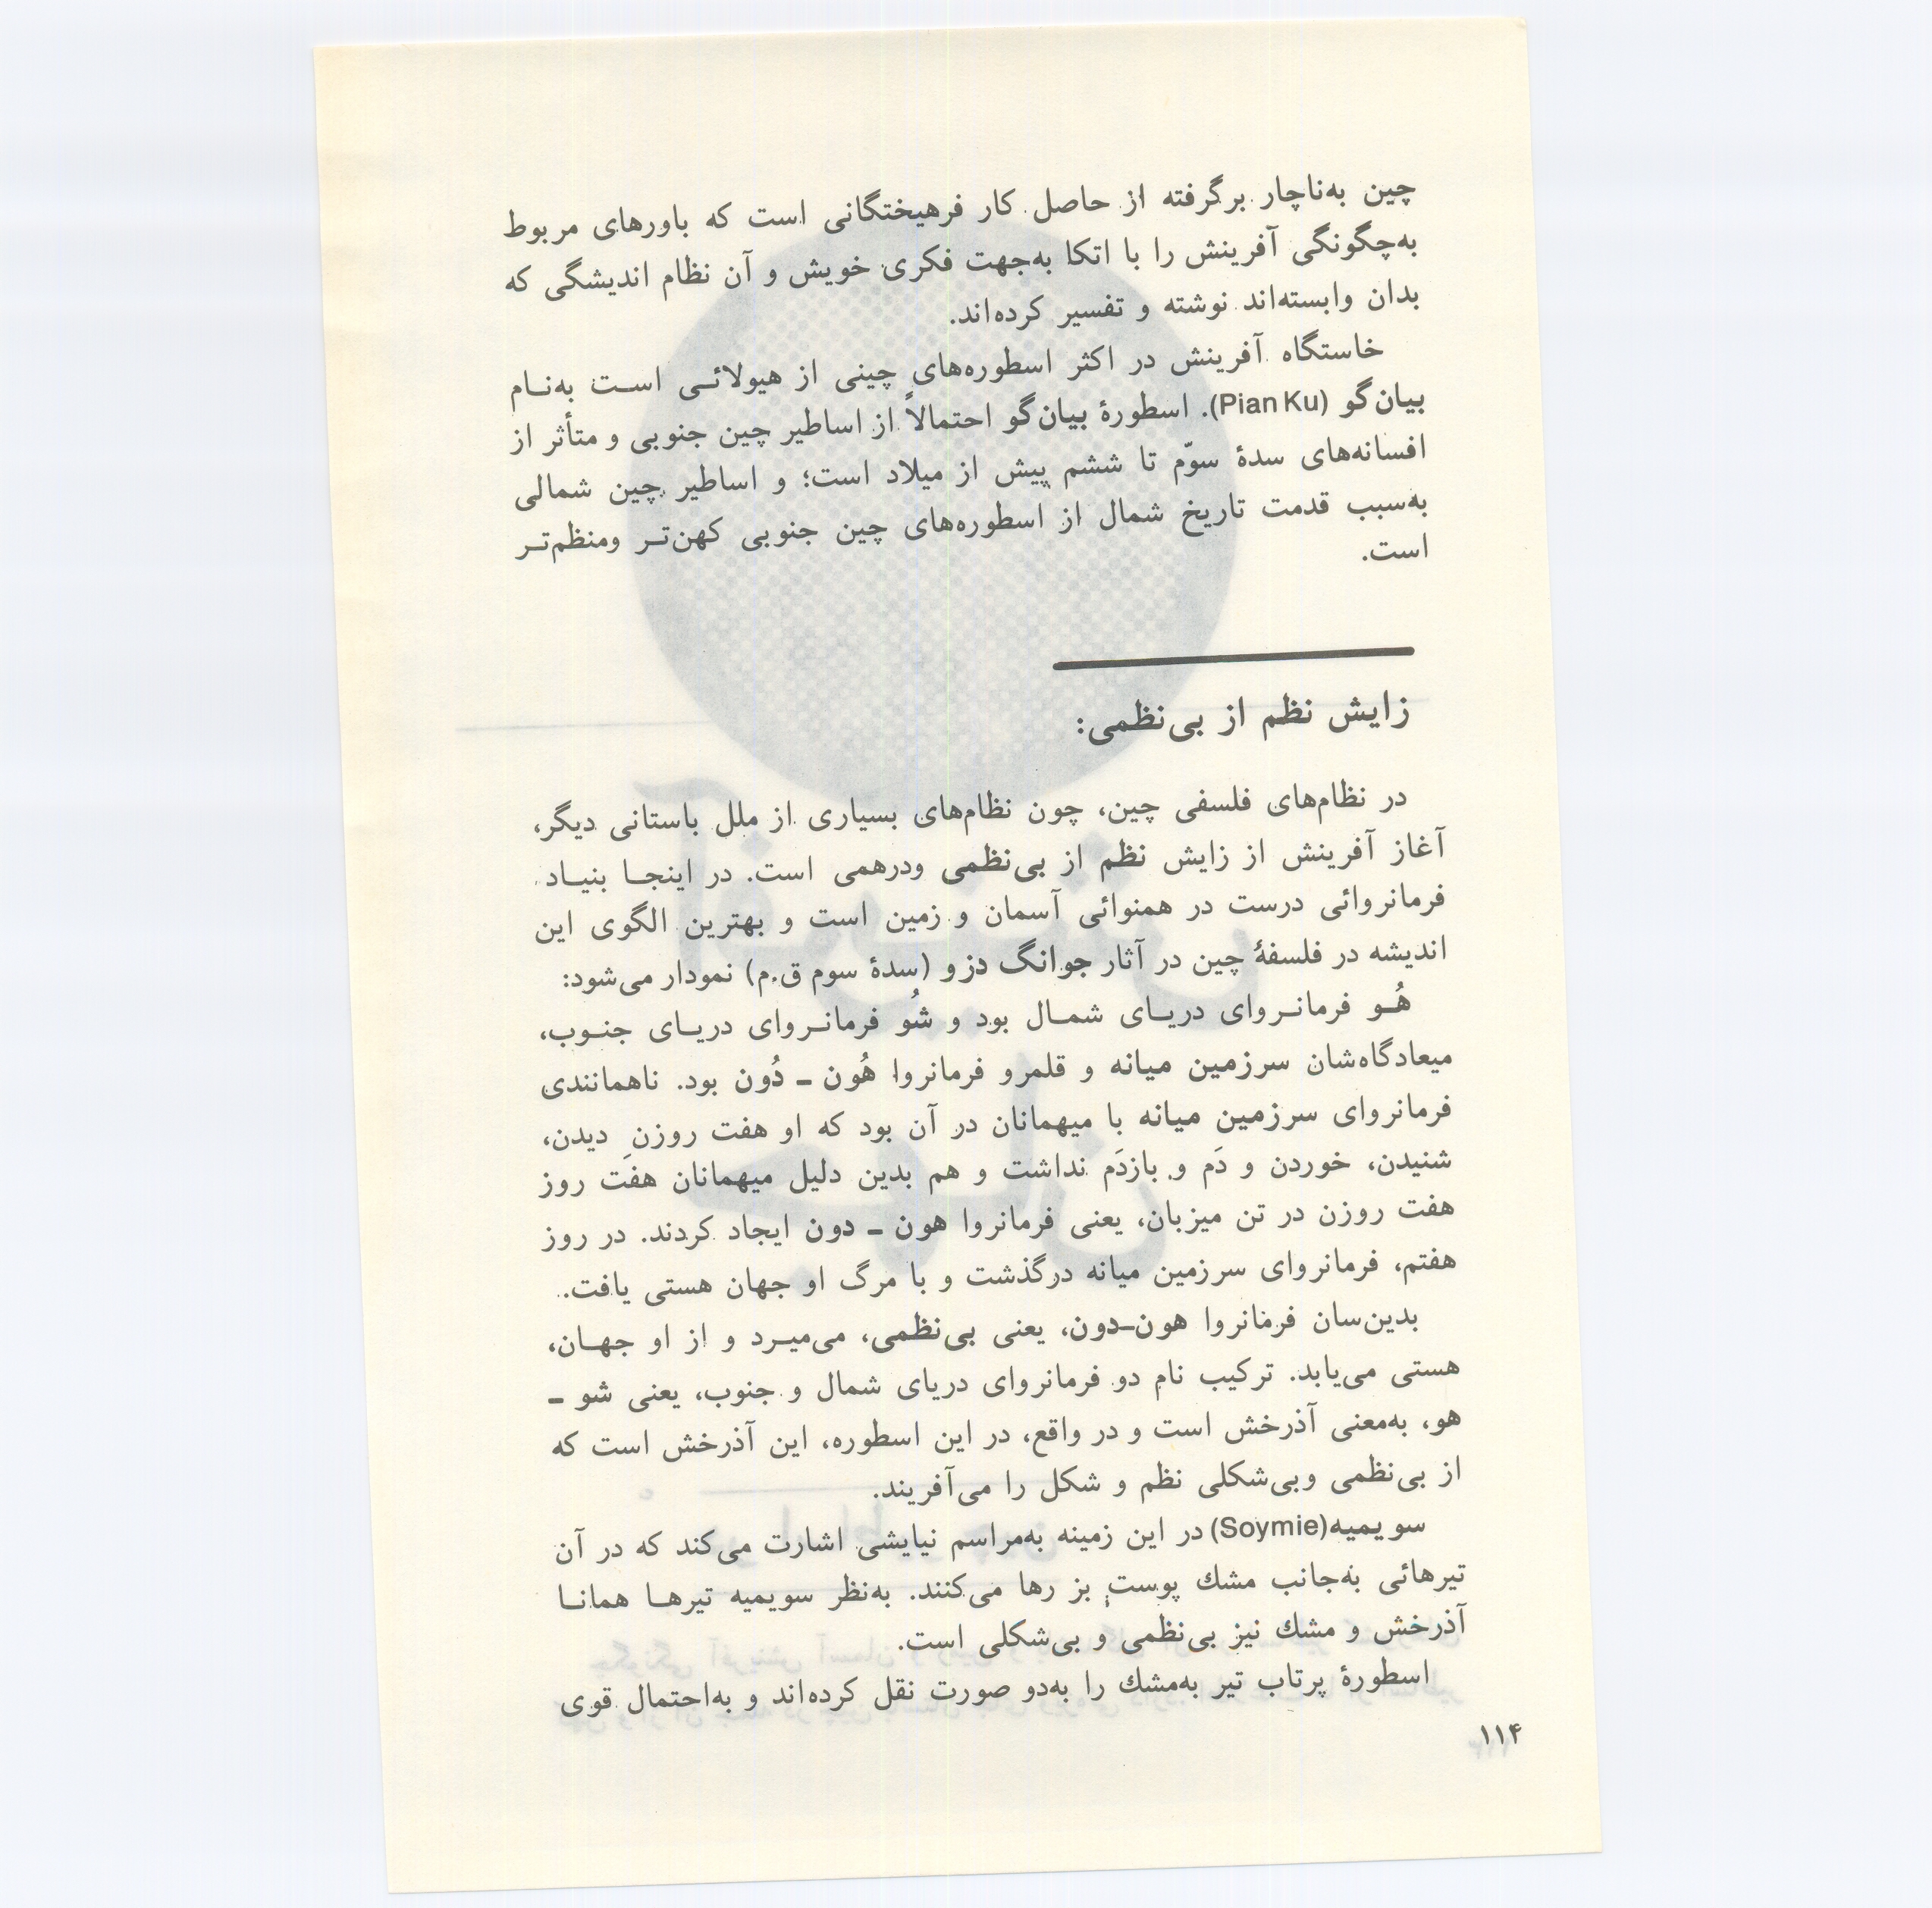 چین به‌ناچار برگرفته از حاصل کار فرهیختگانی است که باورهای مربوط
به‌چگونگی آفرینش را با اتکا به‌جهت فکری خویش و آن نظام اندیشگی که
بدان وابسته‌اند نوشته و تفسیر کرده‌اند.
خاستگاه آفرینش در اکثر اسطوره‌های چینی از هیولائـی اسـت به‌نـام
بیان‌گو (Pian Ku). اسطورهٔ بیان‌گو احتمالاً از اساطیر چین جنوبی و متأثر از
افسانه‌های سدهٔ سوّم تا ششم پیش از میلاد است؛ و اساطیر چین شمالی
به‌سبب قدمت تاریخ شمال از اسطوره‌های چین جنوبی کهن‌تـر ومنظم‌تـر
است.
زایش نظم از بی‌نظمی:
در نظام‌های فلسفی چین، چون نظام‌های بسیاری از ملل باستانی دیگر،
آغاز آفرینش از زایش نظم از بی‌نظمی ودرهمی است. در اینجـا بنیـاد
فرمانروائی درست در همنوائی آسمان و زمین است و بهترین الگوی این
اندیشه در فلسفهٔ چین در آثار جوانگ دزو (سدهٔ سوم ق.م) نمودار می‌شود:
هُـو فرمانـروای دریـای شمـال بود و شُو فرمانـروای دریـای جنـوب،
میعادگاه‌شان سرزمین میانه و قلمرو فرمانروا هُون ـ دُون بود. ناهمانندی
فرمانروای سرزمین میانه با میهمانان در آن بود که او هفت روزنِ دیدن،
شنیدن، خوردن و دَم و بازدَم نداشت و هم بدین دلیل میهمانان هفت روز
هفت روزن در تن میزبان، یعنی فرمانروا هون ـ دون ایجاد کردند. در روز
هفتم، فرمانروای سرزمین میانه درگذشت و با مرگ او جهان هستی یافت.
بدین‌سان فرمانروا هون‌ـ‌دون، یعنی بی‌نظمی، می‌میـرد و از او جهـان،
هستی می‌یابد. ترکیب نام دو فرمانروای دریای شمال و جنوب، یعنی شو ـ
هو، به‌معنی آذرخش است و در واقع، در این اسطوره، این آذرخش است که
از بی‌نظمی وبی‌شکلی نظم و شکل را می‌آفریند.
سویمیه(Soymie) در این زمینه به‌مراسم نیایشی اشارت می‌کند که در آن
تیرهائی به‌جانب مشك پوست بز رها می‌کنند. به‌نظر سویمیه تیرهـا همانـا
آذرخش و مشك نیز بی‌نظمی و بی‌شکلی است.
اسطورهٔ پرتاب تیر به‌مشك را به‌دو صورت نقل کرده‌اند و به‌احتمال قوی
۱۱۴